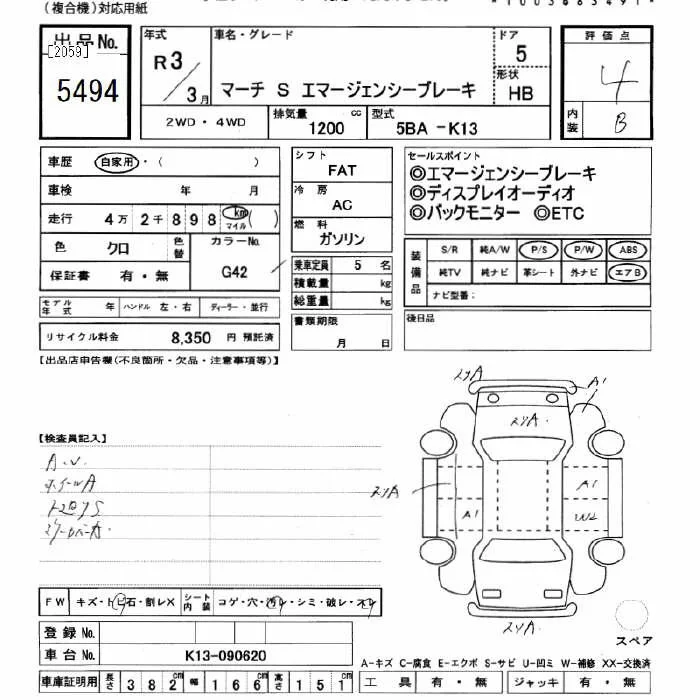 (複合機)対応用紙
出品No.
[2059]
5494
年式
R3/3月
車名・グレード
マーチ S エマージェンシーブレーキ
ドア
5
形状
HB
2WD・4WD
排気量 1200 cc
型式 5BA-K13
評価点
4
内装
B
車歴 自家用・( )
車検 年 月
走行 4万2千898 km マイル ( )
色 クロ 色替 カラーNo.
G42
保証書 有・無
モデル年式 年 ハンドル 左・右 ディーラー・並行
リサイクル料金 8,350 円 預託済
シフト
FAT
冷房
AC
燃料
ガソリン
乗車定員 5 名
積載量 kg
総重量 kg
書類期限
月 日
セールスポイント
◎エマージェンシーブレーキ
◎ディスプレイオーディオ
◎バックモニター ◎ETC
装備品
S/R 純A/W P/S P/W ABS
純TV 純ナビ 革シート 外ナビ エアB
ナビ型番:
後日品
【出品店申告欄(不良箇所・欠品・注意事項等)】
【検査員記入】
A.V.
ホイールA
A1
A1
A1
W2
FW キズ・トビ石・割レX シート内装 コゲ・穴・汚レ・シミ・破レ・スレ
登録No.
車台No. K13-090620
車庫証明用 長さ 382cm 幅 166cm 高さ 151cm
スペア
A-キズ C-腐食 E-エクボ S-サビ U-凹ミ W-補修 XX-交換済
工具 有・無 ジャッキ 有・無